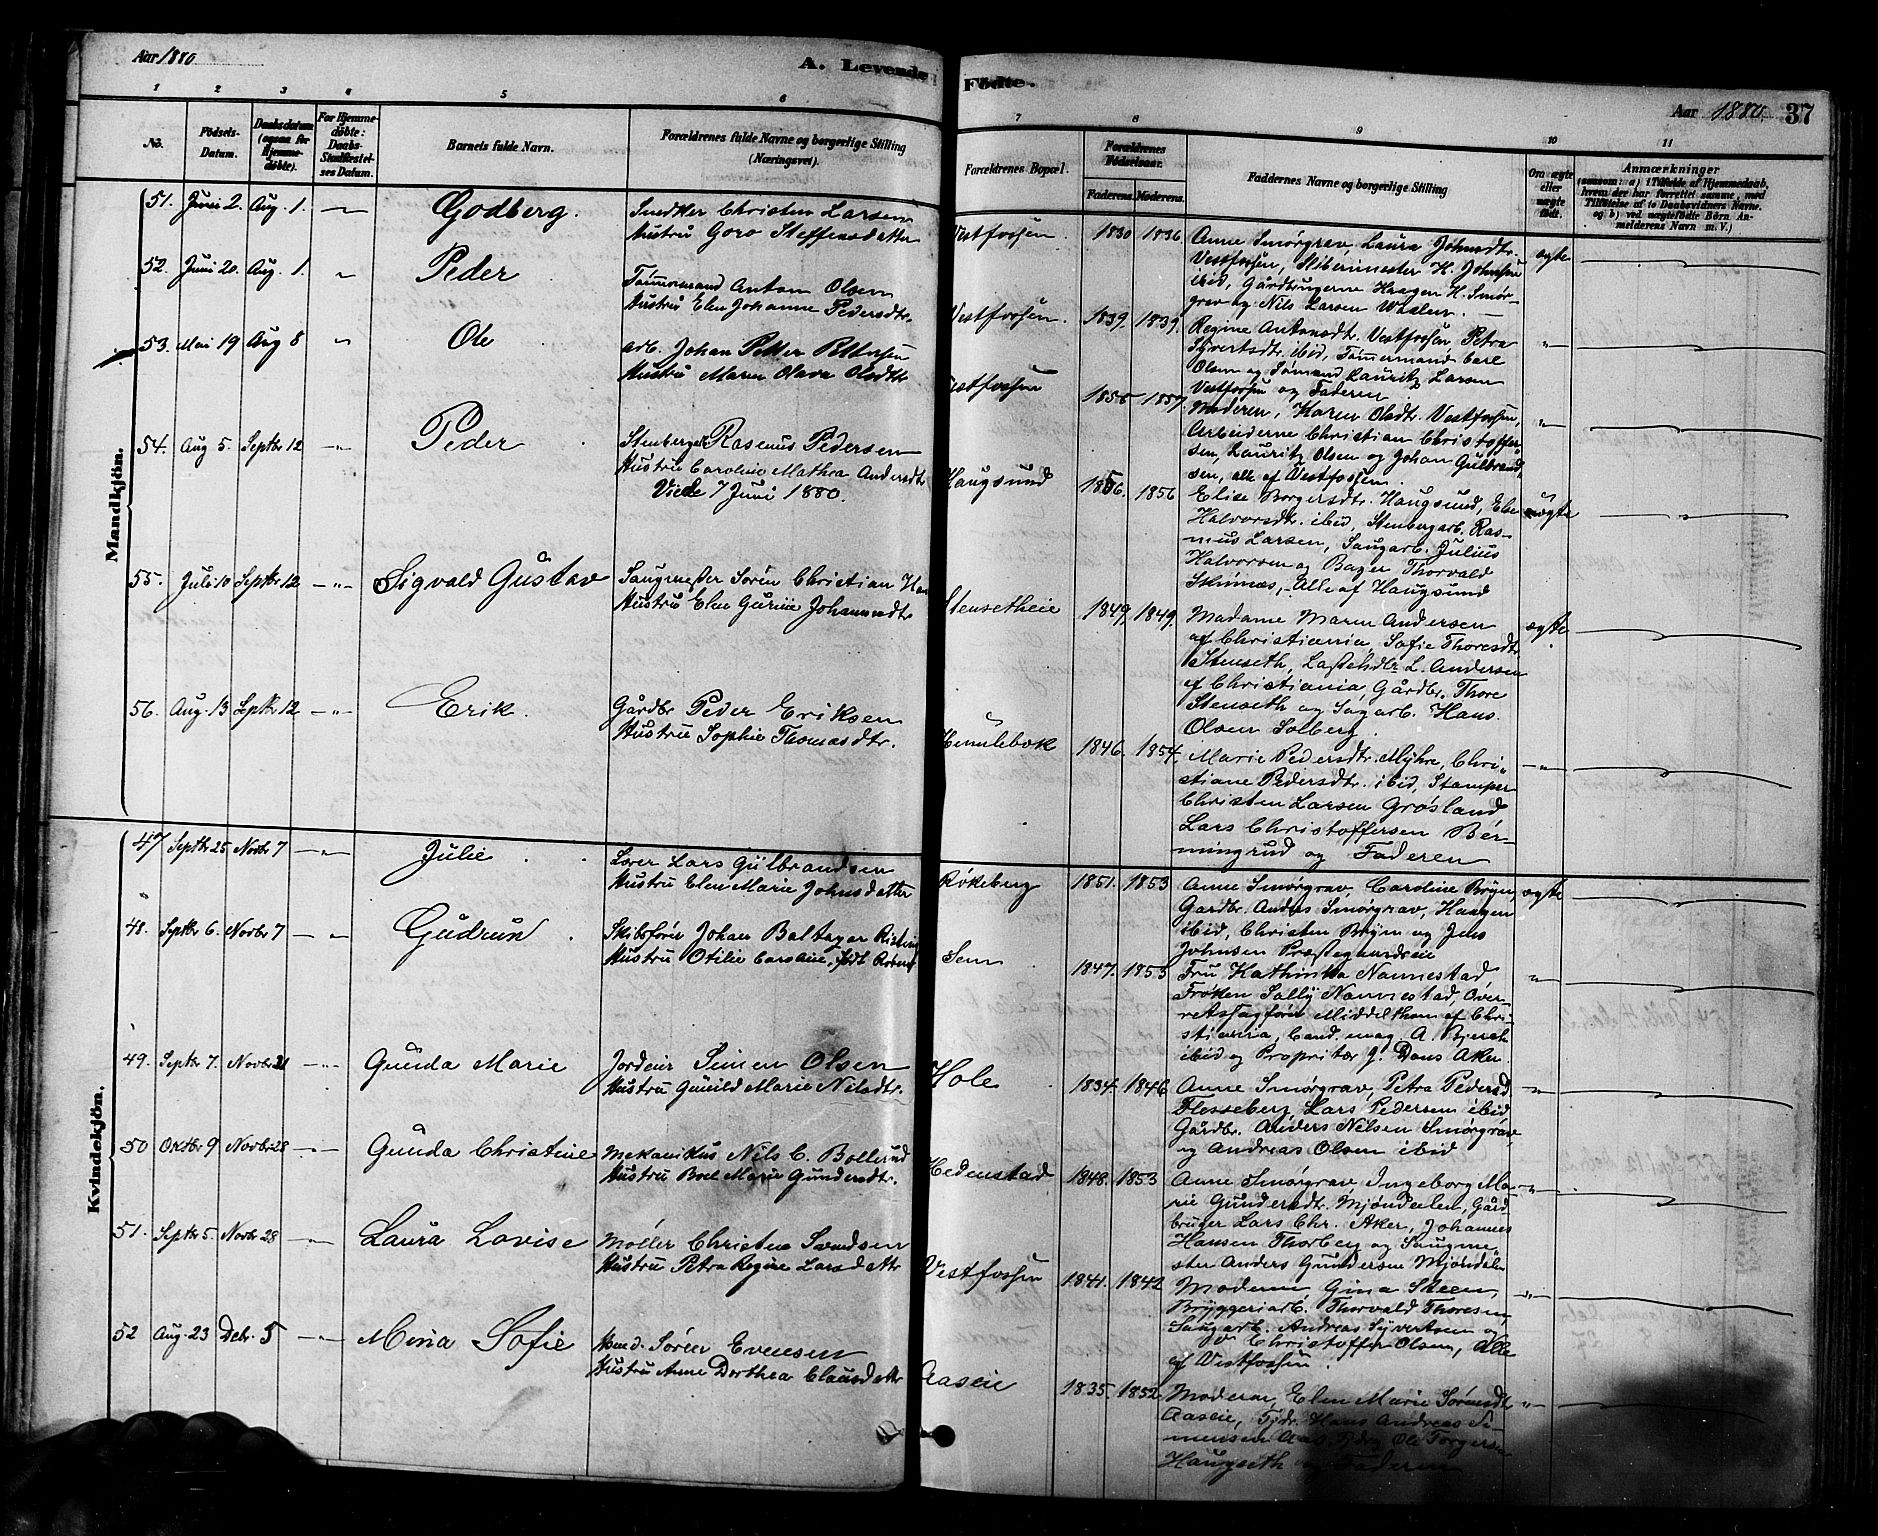 Aar 1880
A. Levende
Fødte.
Aar 1880.
37
1 2 3 4 5 6 7 8 9 10 11
No.
Fødsels-
Datum.
Daabsdatum
(ogsaa for
Hjemme-
døbte).
For Hjemme-
døbte:
Daabs-
Stadfæstel-
ses Datum.
Barnets fulde Navn.
Forældrenes fulde Navne og borgerlige Stilling
(Næringsvei).
Forældrenes Bopæl.
Forældrenes
Fødselsaar.
Faderens. Moderens.
Faddernes Navne og borgerlige Stilling
Om ægte
eller
uægte
født.
Anmærkninger
(saasom: a) i Tilfælde af Hjemmedaab,
hvem der har forrettet samme, med
Tilføielse af to Daabsvidners Navne.
og b) ved uægtefødte Børn An-
melderens Navn m. V.)
Mandkjøn.
51. Juni 2. Aug. 1. Godberg.
Snedker Christen Larsen
Hustru Goro Steffensdatter
Vestfossen 1830 1836
Anne Smørgrav, Laura Johnsdtr.
Vestfossen, Sliberimester H. Johnsen
ibid, Gårdbrugerne Haagen H. Smør-
grav og Nils Larsen
ægte
52. Juni 20. Aug. 1. Peder
Tømmermand Anton Olsen
Hustru Elen Johanne Pedersdtr.
Vestfossen. 1839. 1839.
Regine Antonsdtr. Vestfossen, Petra
Syvertsdtr. ibid, Tømmermand Carl
Olsen og Sømand Lauritz Larsen
Vestfossen og Faderen
53. Mai 19 Aug 8 Ole
arb. Johan Petter Pettersen
Hustru Maren Olava Olsdtr
Vestfossen 1855 1857.
Moderen, Karen Olsdtr. Vestfossen,
Arbeiderne Christian Christoffer-
sen, Lauritz Olsen og Johan Gulbrand-
sen, alle af Vestfossen.
54. Aug 5. Septbr 12 Peder
Rasmus Pedersen
Hustru Caroline Mathea Andersdtr
Viede 7 Juni 1880.
Haugsund 1856. 1856
Elise Borgersdtr. Haugsund, Elen
Halvorsdtr. ibid, Stenbergarb. Ras-
mus Larsen, Saugarb. Julius
Halvorsen og Bager Thorvald
Alle af Haugsund
uægte
55. Juli 10 Septbr 12 Sigvald Gustav
Saugmester Sören Christian
Hustru Elen Gurine Johannesdtr
Stensetheie 1849. 1849.
Madame Maren Andersen
af Christiania, Sofie Thoresdtr.
Stenseth, L. Andersen
af Christiania, Gårdbr. Thore
Stenseth og Sagarb. Hans
Olsen Solberg.
ægte
56. Aug. 13 Septbr 12 Erik.
Gårdbr Peder Eriksen
Hustru Sophie Thomasdtr.
1846. 1854.
Marie Pedersdtr. Myhre, Chri-
stiane Pedersdtr. ibid, Stamper
Christen Larsen Grøsland
Lars Christoffersen Ber-
mingrud og Faderen
Kvindekjøn.
47 Septbr 25 Novbr 7 Julie
Lærer Lars Gulbrandsen
Hustru Elen Marie Johnsdatter
Røkeberg 1851. 1853
Anne Smørgrav, Caroline Bryn,
Gardbr. Anders Smørgrav, Haagen
ibid, Christen Bryn og Jens
Johnsen Præstegaardseie
ægte
48. Septbr 6. Novbr 7 Gudrun
Skibsfører Johan Baltazar
Hustru Otilie Caroline, født
Sem 1847. 1853
Fru Kathinka Nannestad
Frøken Sally Nannestad, Over-
retssagfører Middelthon af Chri-
stiania, Cand. mag. A.
ibid og Proprietær J. Dons Aker
49. Septbr 7. Novbr 21 Gunda Marie
Jordeier Simen Olsen
Hustru Gunild Marie Nilsdtr.
Hole 1834. 1846
Anne Smørgrav, Petra Pedersd.
Flesseberg, Lars Pedersen ibid,
Gårdbr. Anders Nilsen Smørgrav
og Andreas Olsen ibid
50 Oktbr 9 Novbr 28 Gunda Christine
Mekanikus Nils C. Bollerud
Hustru Boel Marie Gundersdtr.
Hedenstad 1848. 1853
Anne Smørgrav, Ingeborg Ma-
rie Gundersdtr. Mjøndalen, Gård-
bruger Lars Chr. Aker, Johannes
Hansen Thorberg og Saugme-
ster Anders Gundersen Mjøndalen
51. Septbr 5. Novbr 28 Laura Lovise
Møller Christen Svendsen
Hustru Petra Regine Larsdatter
Vestfossen 1841. 1842
Moderen, Gina Steen,
Bryggeriarb. Thorvald Thoresen,
Saugarb. Andreas Syvertsen og
Christoffer Olsen, Alle
af Vestfossen.
52 Aug. 23 Debr. 5 Mina Sofie
Sören Evensen
Hustru Anne Dorthea Clausdatter
Aaseie 1835. 1852
Moderen, Elen Marie Sørensdtr
Aaseie, Hans Andreas Si-
mensen Ole Torgersen
Haugseth og Faderen